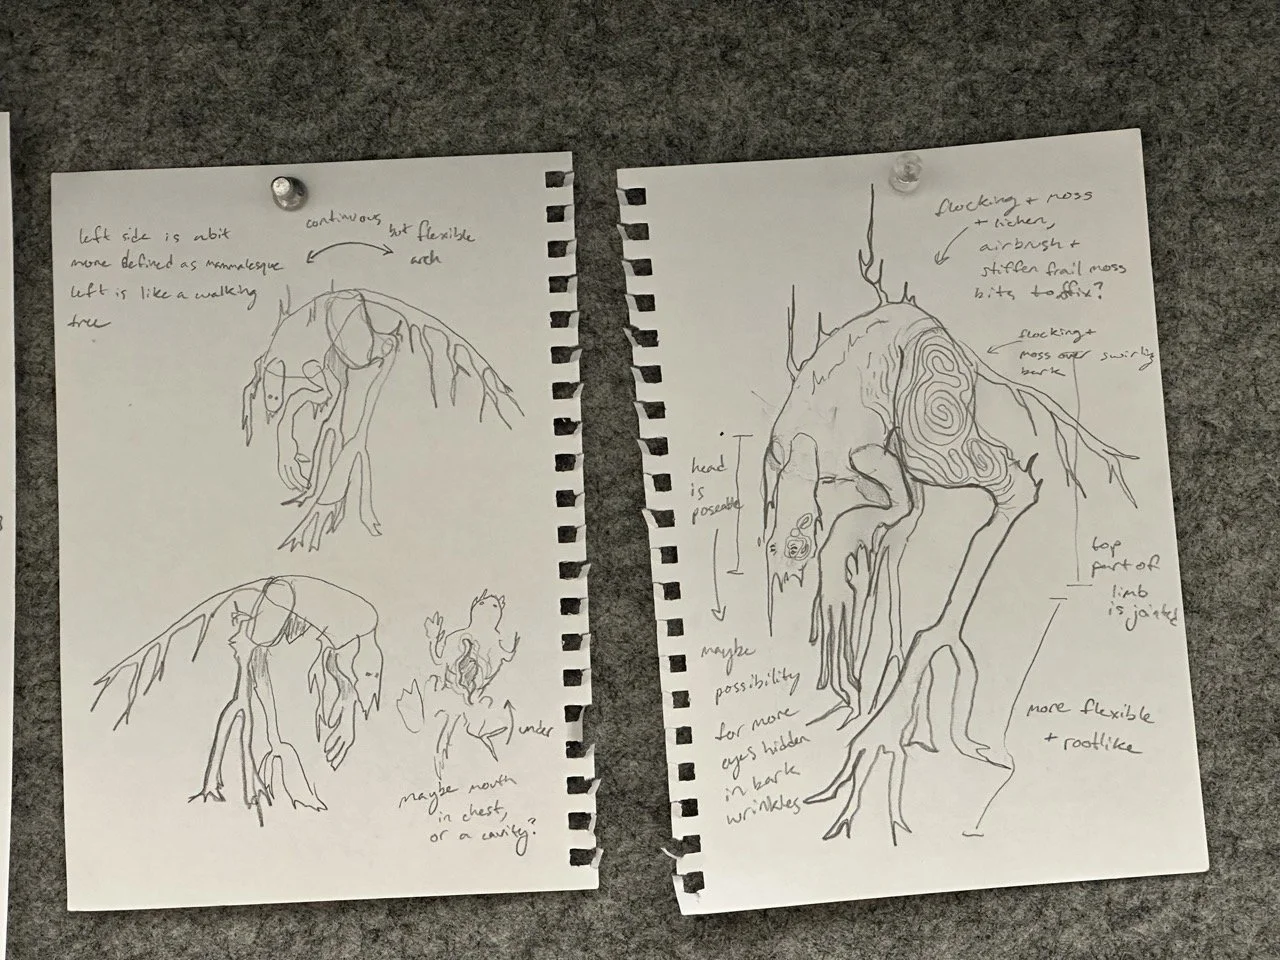 left side is abit
more defined as mammalesque
left is like a walking
tree
continuous
but flexible
arch
under
maybe mouth
in chest,
or a cavity?
flocking + moss
+ lichen,
airbrush +
stiffen frail moss
bits to affix?
flocking +
moss over swirling
bark
head
is
poseable
maybe
possibility
for more
eyes hidden
in bark
wrinkles
top
part of
limb
is jointed
more flexible
+ rootlike